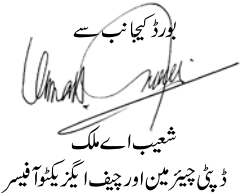 بورڈ کیجانب سے
شعیب اے ملک
ڈپٹی چیئرمین اور چیف ایگزیکٹو آفیسر